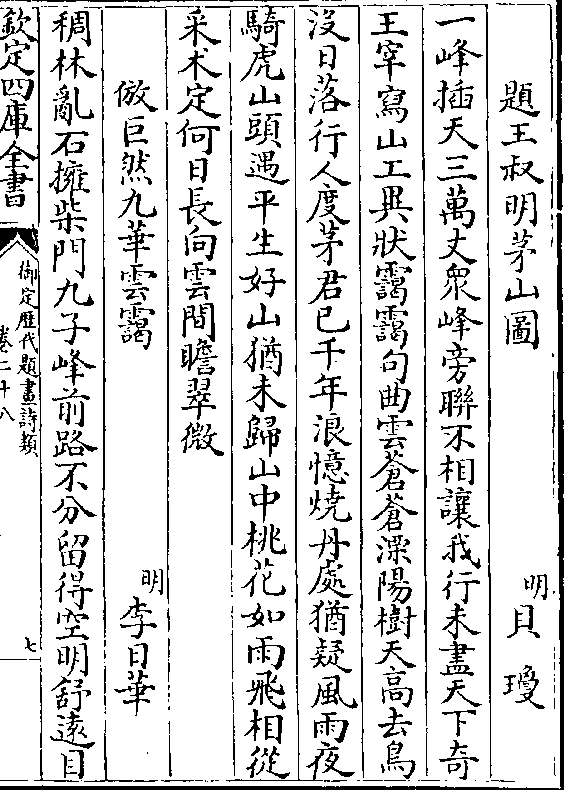 題王叔明茅山圖
明貝瓊
一峰插天三萬丈衆峰旁聯不相讓我行未盡天下竒
王宰寫山工異狀靄靄句曲雲蒼蒼溧陽樹天高去鳥
没日落行人度茅君已千年浪憶燒丹處猶疑風雨夜
騎虎山頭遇平生好山猶未歸山中桃花如雨飛相從
采术定何日長向雲間瞻翠微
倣巨然九華雲靄
明李日華
稠林亂石擁柴門九子峰前路不分留得空明舒遠目
欽定四庫全書
御定歴代題畫詩類
卷二十八
七